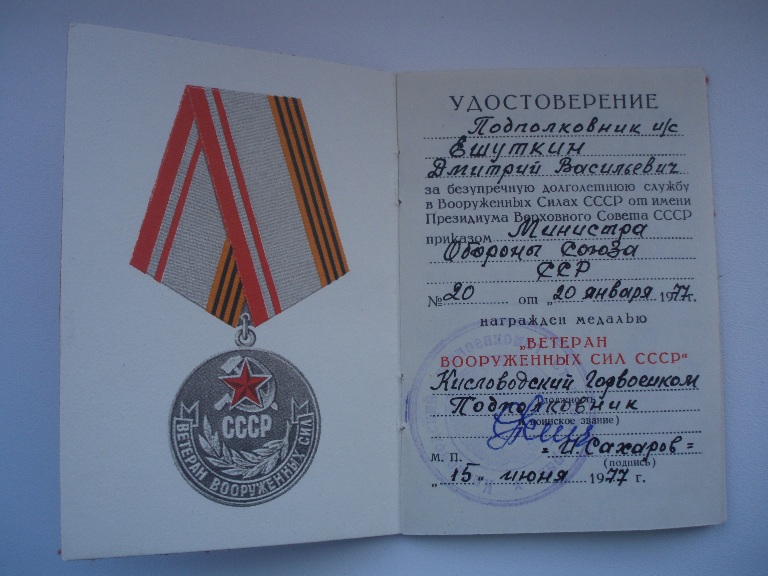 СССР
ВЕТЕРАН ВООРУЖЕННЫХ СИЛ
УДОСТОВЕРЕНИЕ
Подполковник и/с
Ешуткин
Дмитрий Васильевич
за безупречную долголетнюю службу
в Вооруженных Силах СССР от имени
Президиума Верховного Совета СССР
приказом Министра
Обороны Союза
ССР
№ 20 от „20 января 1977г.
награжден медалью
„ВЕТЕРАН
ВООРУЖЕННЫХ СИЛ СССР“
Кисловодский Горвоенком
(должность)
Подполковник
(воинское звание)
= И. Сахаров =
М. П. (подпись)
„15„ июня 1977 г.